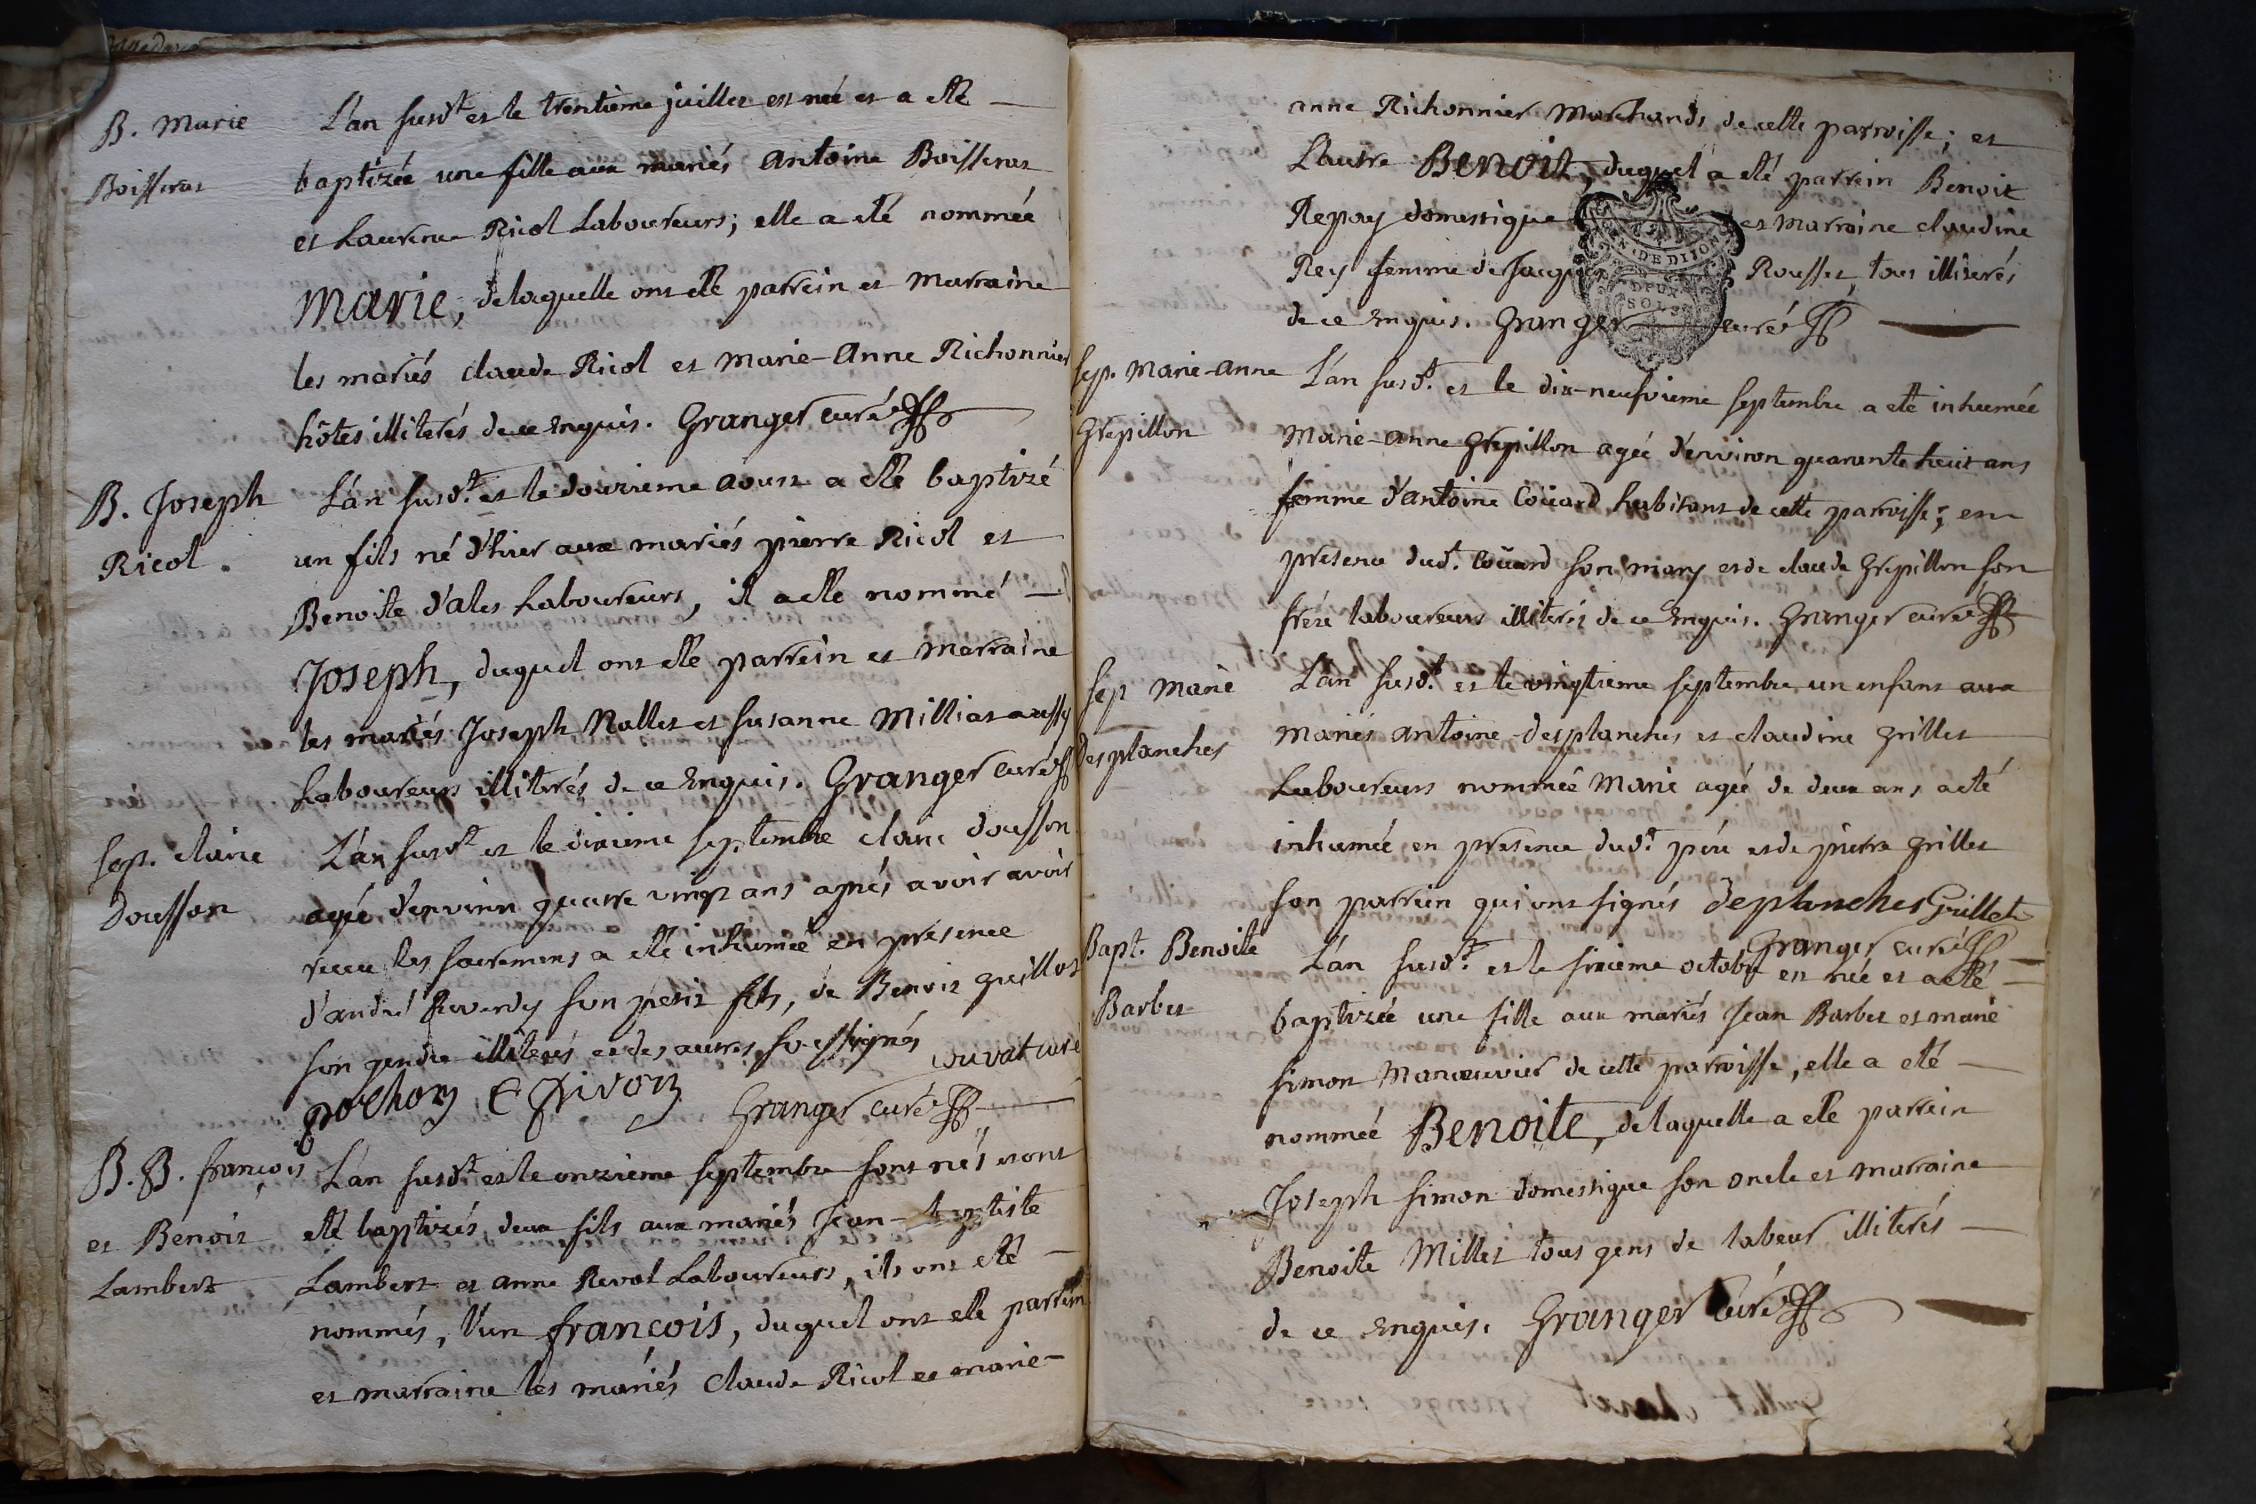 B. Marie
Boisseras
L'an susd.t et le trentieme juillet est née et a eté
baptizée une fille aux mariés antoine Boisseras
et Laurence Ricol Laboureurs; elle a eté nommée
Marie, delaquelle ont eté parrein et marraine
les mariés claude Ricol et marie-Anne Richonnier
hôtes illiterés de ce enquis. Granger curé
B. Joseph
Ricol.
L'an susd.t et le douzieme aoust a eté baptizé
un fils né d'hier aux mariés pierre Ricol et
Benoite d'ales Laboureurs, il a eté nommé
Joseph, duquel ont eté parrein et marraine
les mariés Joseph Nallet et susanne Milliat aussy
Laboureurs illiterés de ce enquis. Granger curé
sep. claire
Dousson
L'an susd.t et le dixieme septembre claire dousson
agée d'environ quatre vingt ans aprés avoir avoir
receu les sacremens a eté inhumée en présence
d'andré Reverdy son petit fils, de Benoit guillot
son gendre illiterés et des autres soussignés
pochon C Privon
ouvat curé
Granger curé
B. B. françois
et Benoit
Lambert
L'an susd.t et le onzieme septembre sont nés et ont
eté baptizés deux fils aux mariés Jean-baptiste
Lambert et anne Revol Laboureurs, ils ont eté
nommés, l'un françois, duquel ont eté parrein
et marraine les mariés claude Ricol et marie-
anne Richonnier marchands de cette parroisse; et
L'autre Benoit, duquel a eté parrein Benoit
Repay domestique et marraine claudine
Rey femme de Jacques Rousset, tous illiterés
de ce enquis. Granger curé
GEN. DE DIJON
DEUX
SOLS
sep. Marie-anne
Grepillon
L'an susd.t et le dix-neufvieme septembre a eté inhumée
Marie-anne Grepillon agée d'environ quarante huit ans
femme d'antoine Coüard habitans de cette parroisse; en
presence dud.t coüard son mary et de claude Grepillon son
frére laboureurs illiterés de ce enquis. Granger curé
sep Marie
desplanches
L'an susd.t et le vingtieme septembre un enfant aux
mariés antoine desplanches et claudine Grillet
Laboureurs nommée Marie agée de deux ans a eté
inhumée en presence dud.t pére et de pierre Grillet
son parrein qui ont signés Deplanches Grillet
Granger curé
Bapt. Benoite
Barbet
L'an susd.t et le sixieme octobre est née et a eté
baptizée une fille aux mariés Jean Barbet et marie
simon Manoeuvrier de cette parroisse, elle a eté
nommée Benoite, delaquelle a eté parrein
Joseph simon domestique son oncle et marraine
Benoite Millet tous gens de labeur illiterés
de ce enquis. Granger Curé